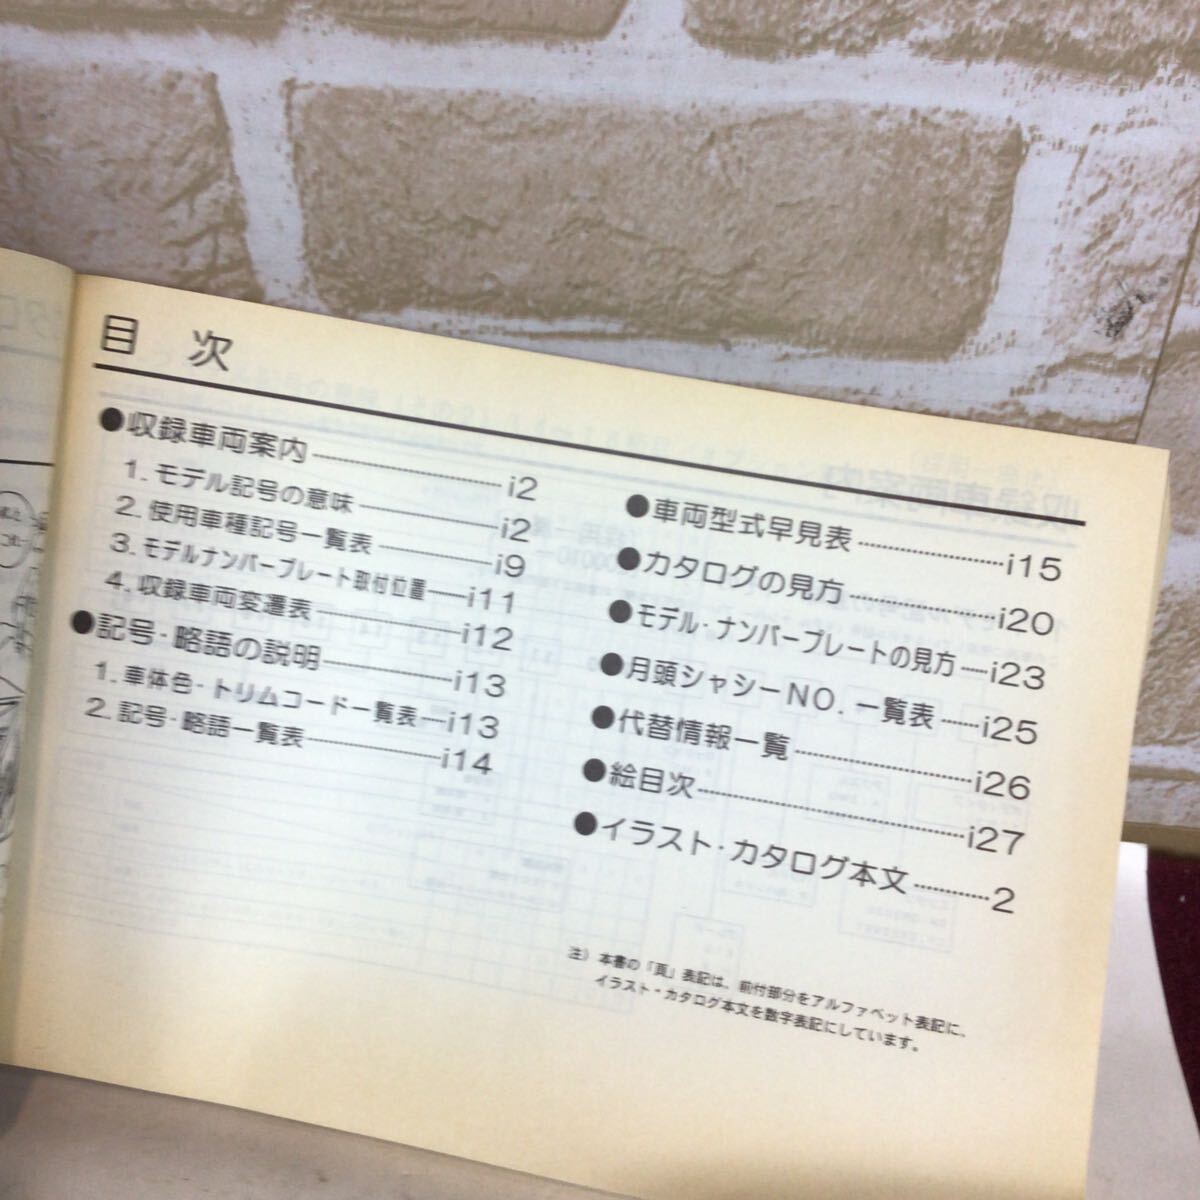 目 次
●収録車両案内………i2
1. モデル記号の意味………i2
2. 使用車種記号一覧表………i9
3. モデルナンバープレート取付位置……i11
4. 収録車両変遷表………i12
●記号・略語の説明………i13
1. 車体色・トリムコード一覧表…i13
2. 記号・略語一覧表………i14
●車両型式早見表………i15
●カタログの見方………i20
●モデル・ナンバープレートの見方…i23
●月頭シャシーNO. 一覧表……i25
●代替情報一覧………i26
●絵目次………i27
●イラスト・カタログ本文………2
注) 本書の「頁」表記は、前付部分をアルファベット表記に、
イラスト・カタログ本文を数字表記にしています。